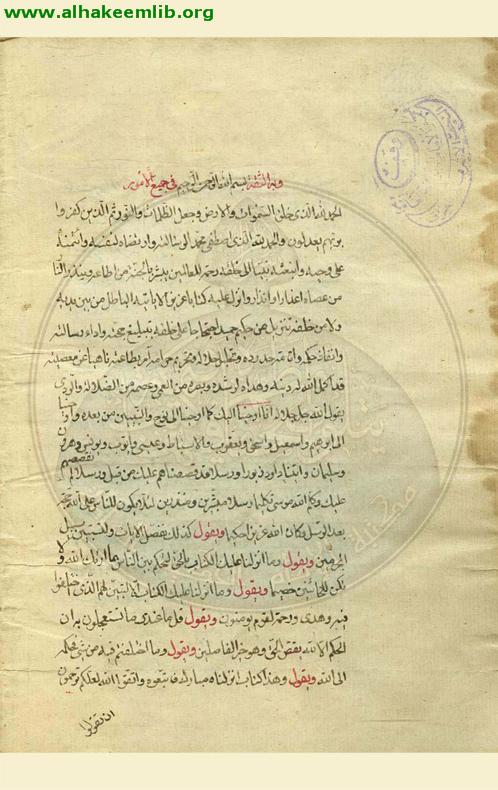 www.alhakeemlib.org
وبه الثقة بسم الله الرحمن الرحيم في جميع الامور
الحمد لله الذي خلق السموات والارض وجعل الظلمات والنور ثم الذين كفروا
بربهم يعدلون والحمد لله الذي اصطفى محمد الرسالته وارتضاه لنفسه وائتمنه
على وحيه وابتعثه نبيا الى خلقه رحمة للعالمين يبشر بالجنة من اطاعه وينذر بالنار
من عصاه اعذارا وانذارا وانزل عليه كتابا عزيزا لا ياتيه الباطل من بين يديه
ولا من خلفه تنزيل من حكيم حميد احتجاجا على خلقه بتبليغ حجته واداء رسالته
وانفاذ حكمه واقامة حدوده وتحليل حلاله وتحريم حرامه امر بطاعته ناهيا عن معصيته
قد اكمل الله له دينه وهداه لرشده وبصره من العمى وعصمه من الضلالة والردى
يقول الله جل جلاله انا اوحينا اليك كما اوحينا الى نوح والنبيين من بعده واوحينا
الى ابرهيم واسمعيل واسحق ويعقوب والاسباط وعيسى وايوب ويونس وهرون
وسليمان واتينا داود زبورا ورسلا قد قصصناهم عليك من قبل ورسلا لم نقصصهم
عليك وكلم الله موسى تكليما رسلا مبشرين ومنذرين لئلا يكون للناس على الله حجة
بعد الرسل وكان الله عزيزا حكيما ويقول كذلك نفصل الايات ولتستبين سبيل
المجرمين ويقول وما انزلنا عليك الكتاب بالحق لتحكم بين الناس بما اراك الله ولا
تكن للخائنين خصيما ويقول وما انزلنا عليك الكتاب الا لتبين لهم الذي اختلفوا
فيه وهدى ورحمة لقوم يومنون ويقول قل ما عندي ما تستعجلون به ان
الحكم الا لله يقص الحق وهو خير الفاصلين ويقول وما اختلفتم فيه من شئ فحكمه
الى الله ويقول وهذا كتاب انزلناه مبارك فاتبعوه واتقوا الله لعلكم ترحمون
ان تقولوا